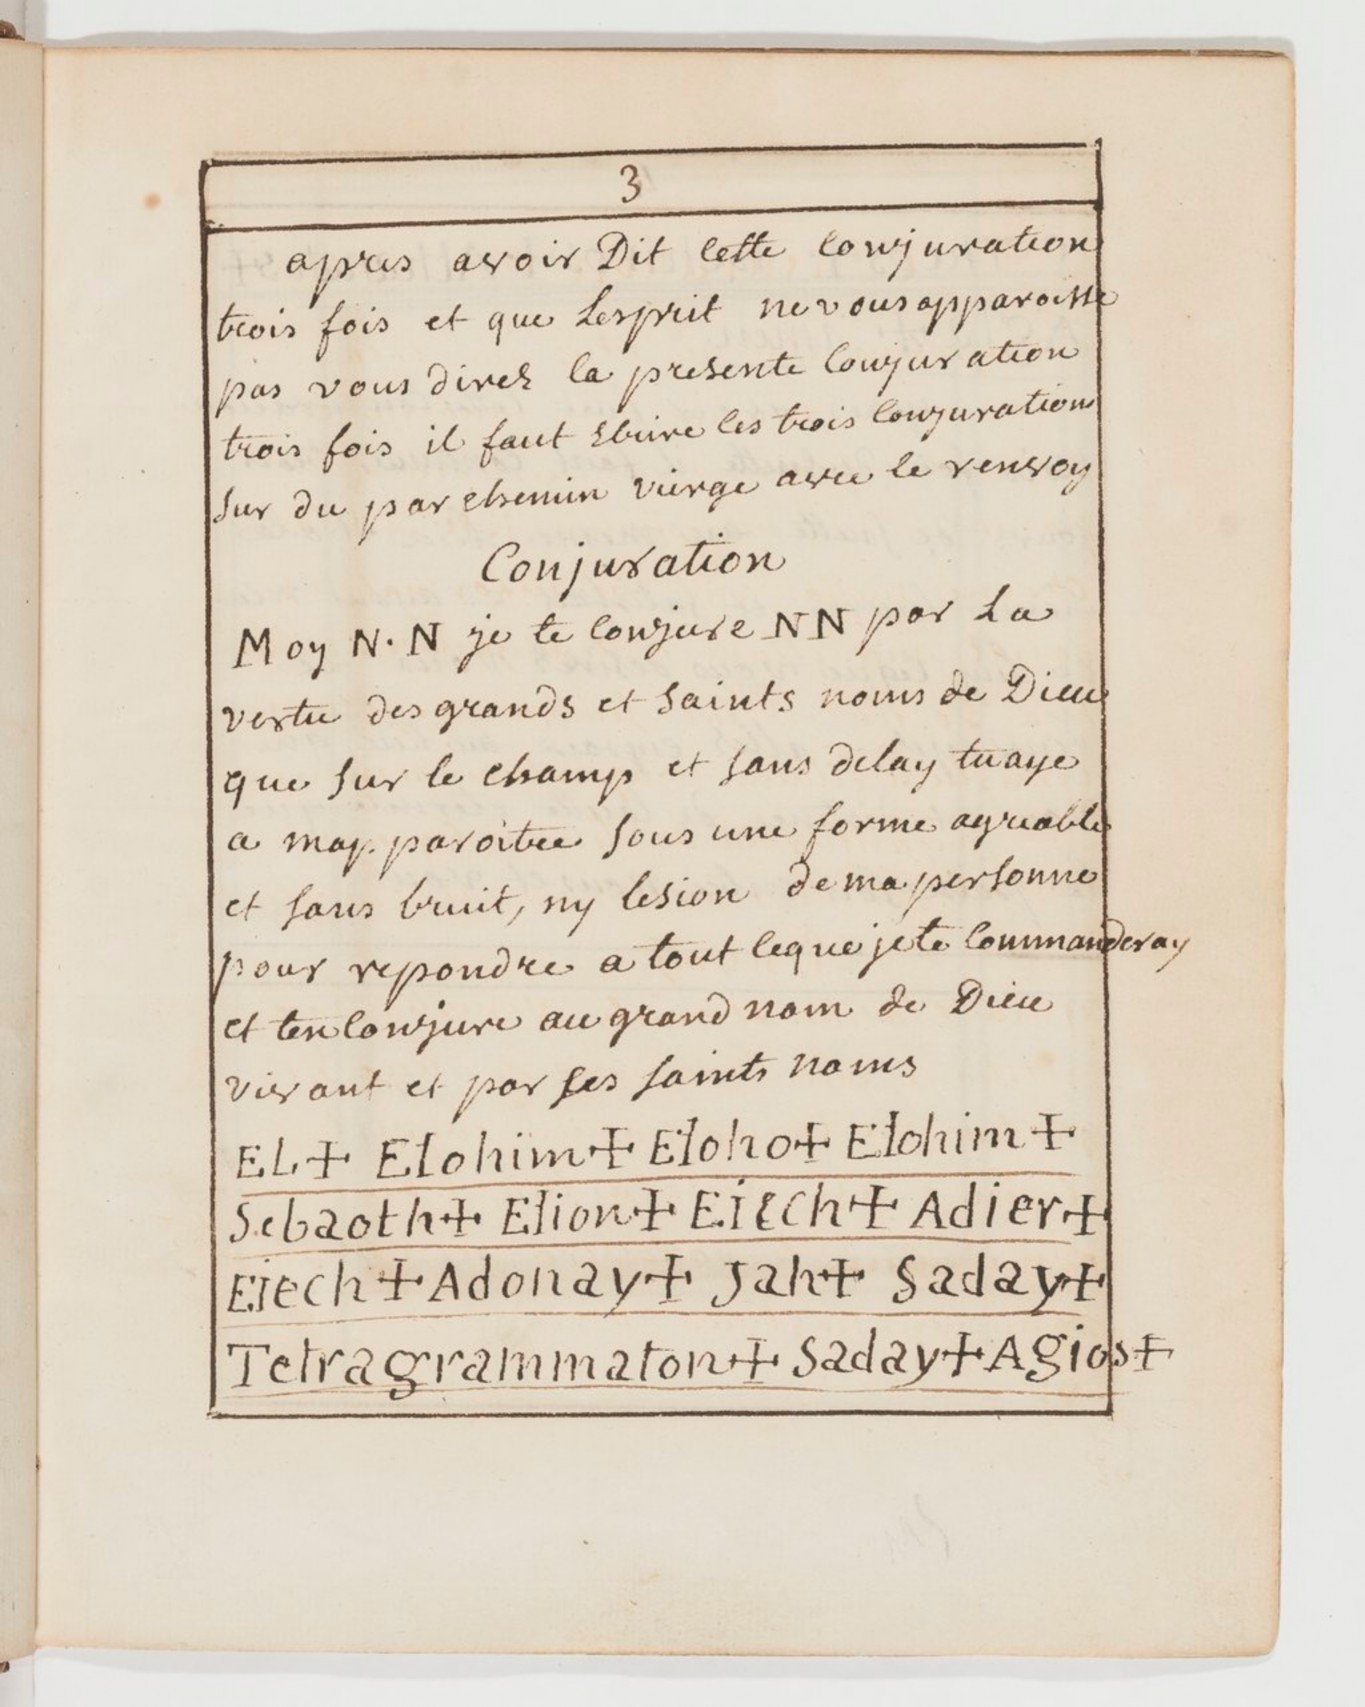 3
apres avoir Dit cette conjuration
trois fois et que Lesprit ne vous apparoisse
pas vous direz la presente conjuration
trois fois il faut Ecrire les trois conjurations
sur du parchemin vierge avec le renvoy
Conjuration
Moy N. N je te conjure NN par La
vertu des grands et saints noms de Dieu
que sur le champ et sans delay tu aye
a map paroitre sous une forme agreable
et sans bruit, ny lesion de ma personne
pour repondre a tout ceque je te commanderay
et ten conjure au grand nom de Dieu
vivant et par ses saints noms
EL + Elohim + Eloho + Elohim +
Sebaoth + Elion + Eiech + Adier +
Eiech + Adonay + Jah + Saday +
Tetragrammaton + Saday + Agios +